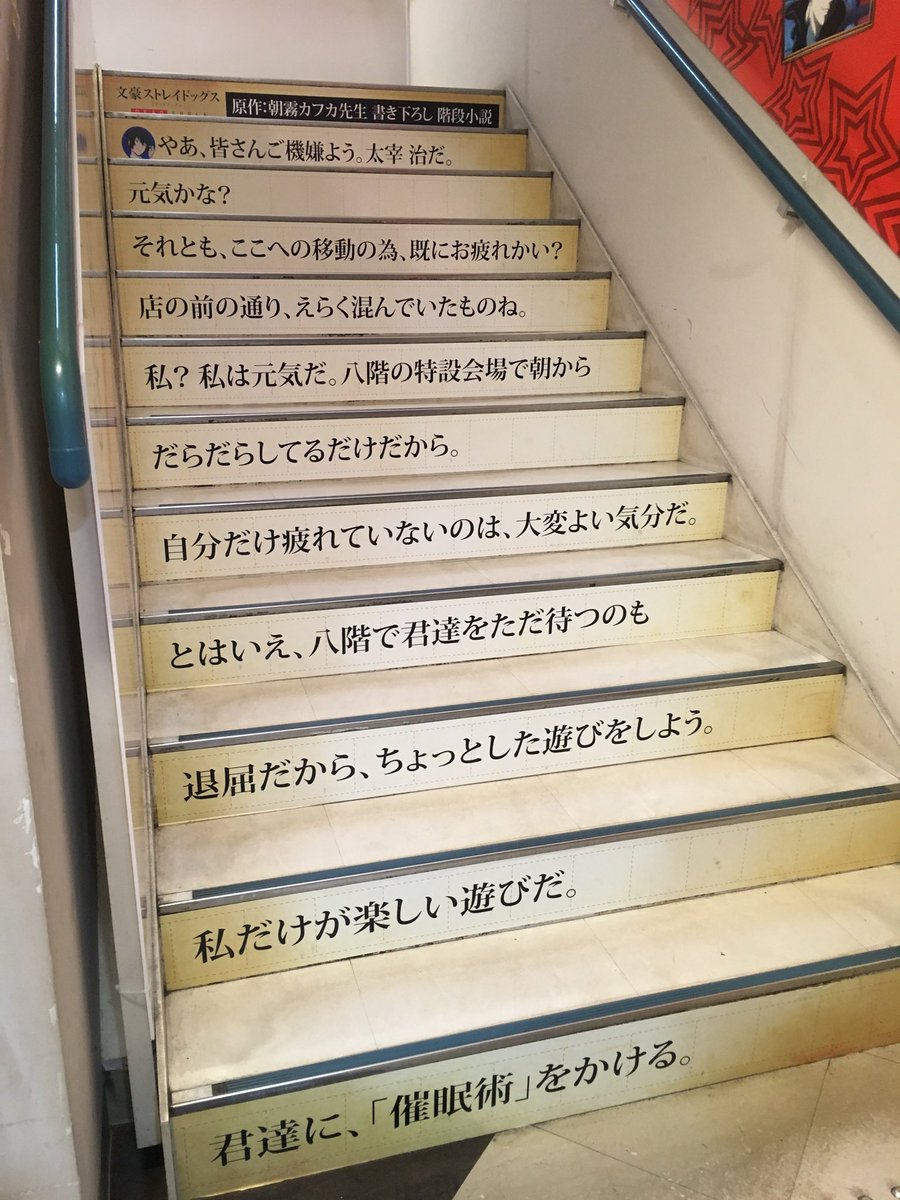 文豪ストレイドッグス
原作：朝霧カフカ先生 書き下ろし 階段小説
やあ、皆さんご機嫌よう。太宰 治だ。
元気かな？
それとも、ここへの移動の為、既にお疲れかい？
店の前の通り、えらく混んでいたものね。
私？ 私は元気だ。八階の特設会場で朝から
だらだらしてるだけだから。
自分だけ疲れていないのは、大変よい気分だ。
とはいえ、八階で君達をただ待つのも
退屈だから、ちょっとした遊びをしよう。
私だけが楽しい遊びだ。
君達に、「催眠術」をかける。